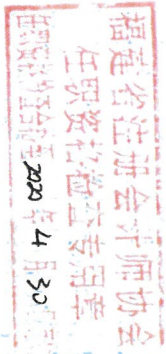 福建省注册会计师协会
任职资格检查专用章
至2020年4月30日